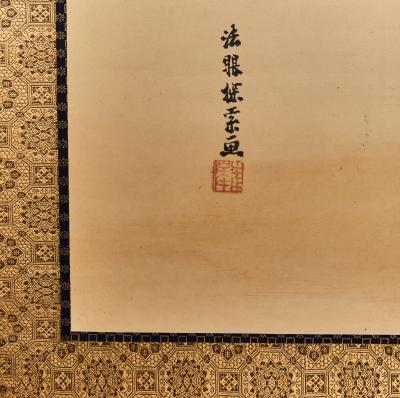 法眼探索画